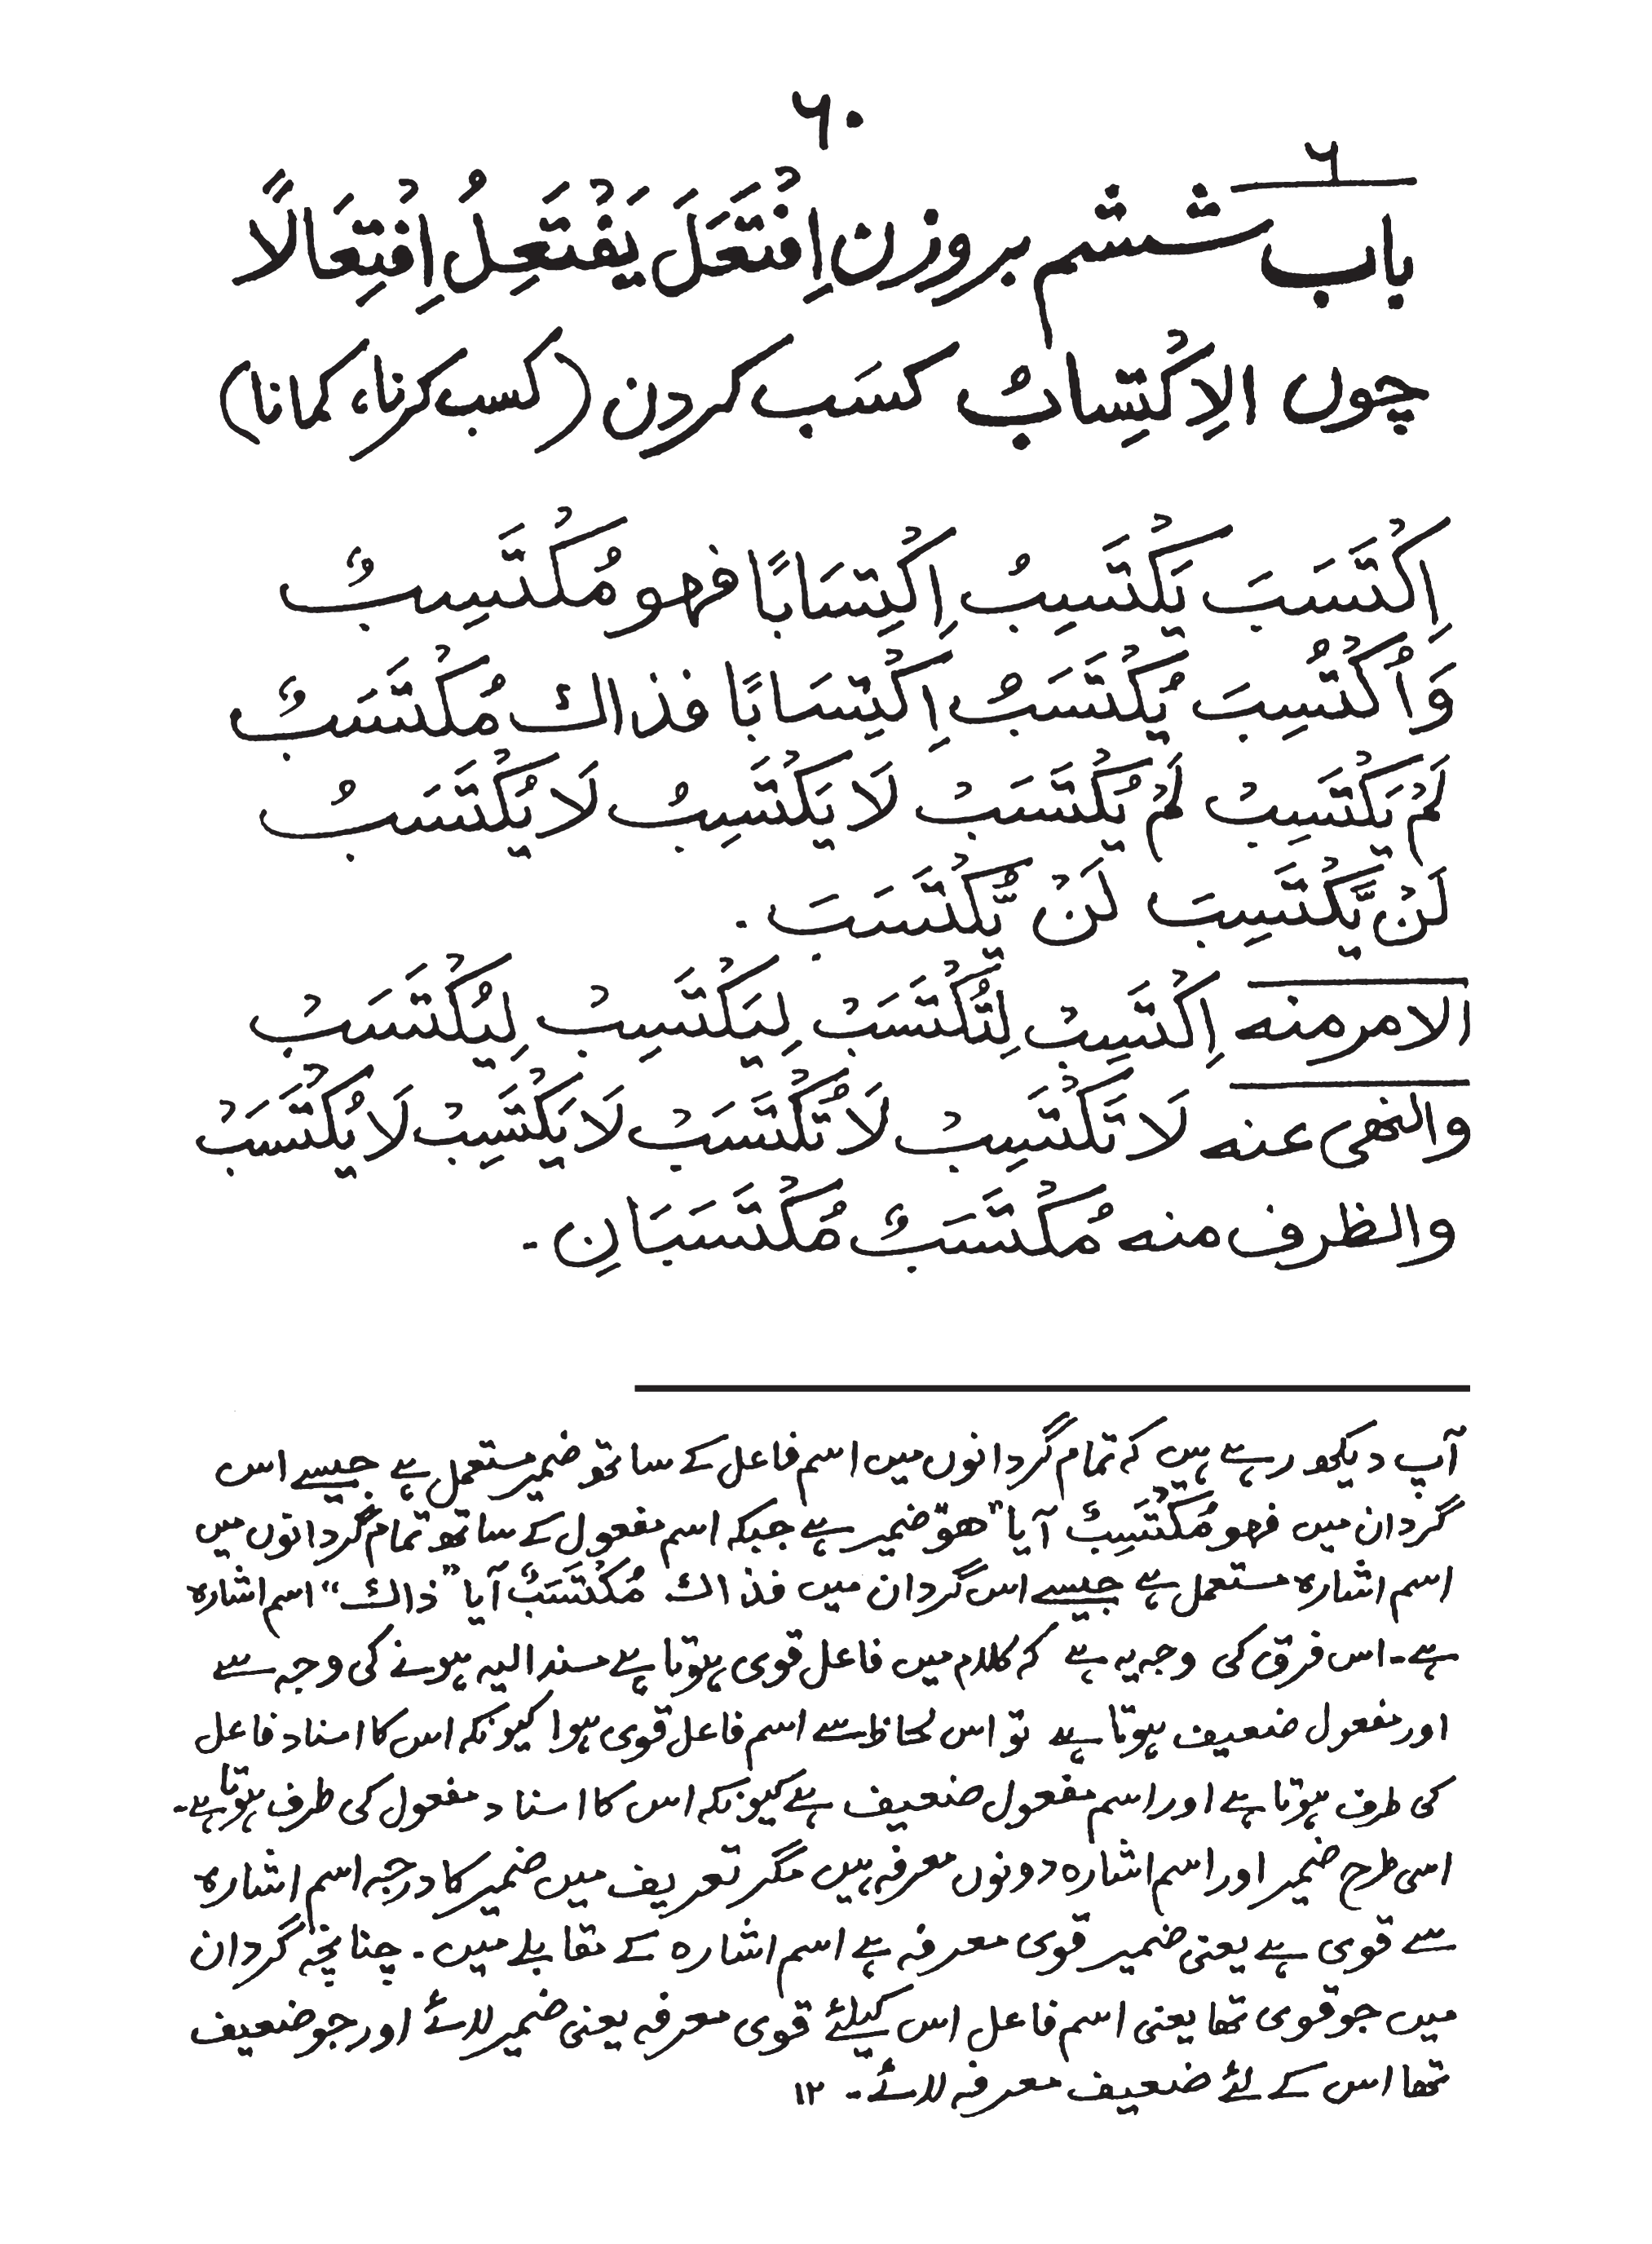 ۶۰
۶
باب ششم بروزن اِفْتَعَلَ يَفْتَعِلُ اِفْتِعَالًا
چوں الِاكْتِسَابُ کسَب کردن (کسب کرنا، کمانا)
اِكْتَسَبَ يَكْتَسِبُ اِكْتِسَابًا فهو مُكْتَسِبٌ
وَاُكْتُسِبَ يُكْتَسَبُ اِكْتِسَابًا فذاك مُكْتَسَبٌ
لَمْ يَكْتَسِبْ لَمْ يُكْتَسَبْ لَا يَكْتَسِبُ لَا يُكْتَسَبُ
لَنْ يَّكْتَسِبَ لَنْ يُّكْتَسَبَ ۔
الامر منه اِكْتَسِبْ لِتُكْتَسَبْ لِيَكْتَسِبْ لِيُكْتَسَبْ
والنهى عنه لَا تَكْتَسِبْ لَا تُكْتَسَبْ لَا يَكْتَسِبْ لَا يُكْتَسَبْ
والظرف منه مُكْتَسَبٌ مُكْتَسَبَانِ ۔
آپ دیکھ رہے ہیں کہ تمام گردانوں میں اسم فاعل کے ساتھ ضمیر مستعمل ہے جیسے اس
گردان میں فهو مُكْتَسِبٌ آیا "هو" ضمیر ہے جبکہ اسم مفعول کے ساتھ تمام گردانوں میں
اسم اشارہ مستعمل ہے جیسے اس گردان میں فذاك مُكْتَسَبٌ آیا "ذاك" اسم اشارہ
ہے۔ اس فرق کی وجہ یہ ہے کہ کلام میں فاعل قوی ہوتا ہے مسند الیہ ہونے کی وجہ سے
اور مفعول ضعیف ہوتا ہے تو اس لحاظ سے اسم فاعل قوی ہوا کیونکہ اس کا اسناد فاعل
کی طرف ہوتا ہے اور اسم مفعول ضعیف ہے کیونکہ اس کا اسناد مفعول کی طرف ہوتا ہے۔
اسی طرح ضمیر اور اسم اشارہ دونوں معرفہ ہیں مگر تعریف میں ضمیر کا درجہ اسم اشارہ
سے قوی ہے یعنی ضمیر قوی معرفہ ہے اسم اشارہ کے مقابلے میں۔ چنانچہ گردان
میں جو قوی تھا یعنی اسم فاعل اس کیلئے قوی معرفہ یعنی ضمیر لائے اور جو ضعیف
تھا اس کے لئے ضعیف معرفہ لائے۔ ۱۲